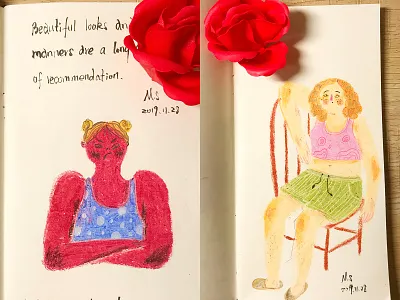 Beautiful looks and
manners are a long
of recommendation.
M.S
2019.11.23
M.S
2019.11.23